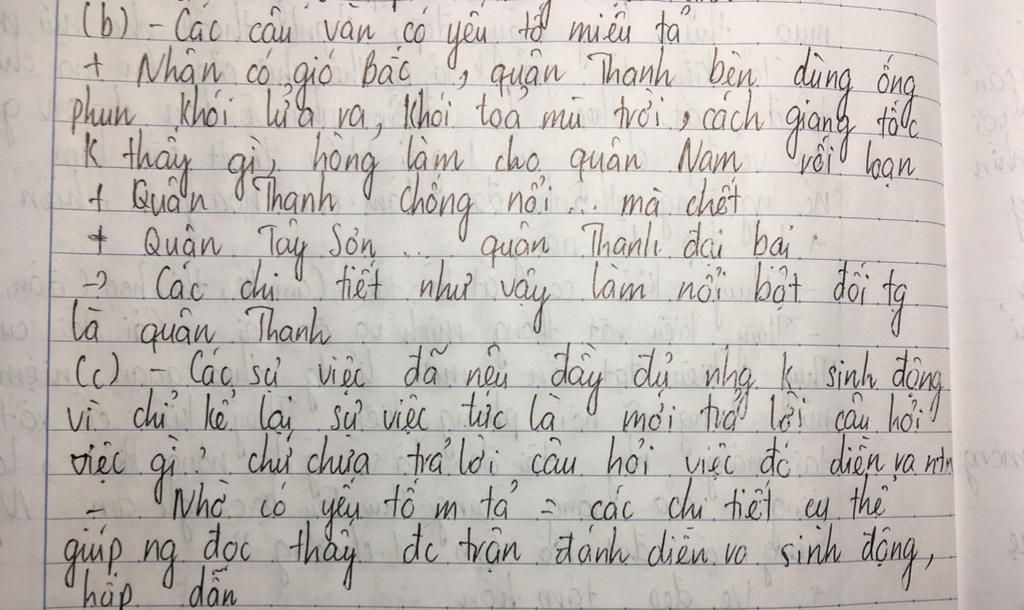 (b) - Các câu văn có yếu tố miêu tả
+ Nhân có gió bắc, quân Thanh bèn dùng ống
phun khói lửa ra, khói toả mù trời, cách gang tấc
k thấy gì, hòng làm cho quân Nam rối loạn
+ Quân Thanh chống nổi... mà chết
+ Quân Tây Sơn.... quân Thanh đại bại
-> Các chi tiết như vậy làm nổi bật đối tg
là quân Thanh
(c) - Các sự việc đã nêu đầy đủ nhg k sinh động
vì chỉ kể lại sự việc tức là mới trả lời câu hỏi
việc gì? chứ chưa trả lời câu hỏi việc đó diễn ra ntn
- Nhờ có yếu tố m tả = các chi tiết cụ thể
giúp ng đọc thấy đc trận đánh diễn ra sinh động,
hấp dẫn